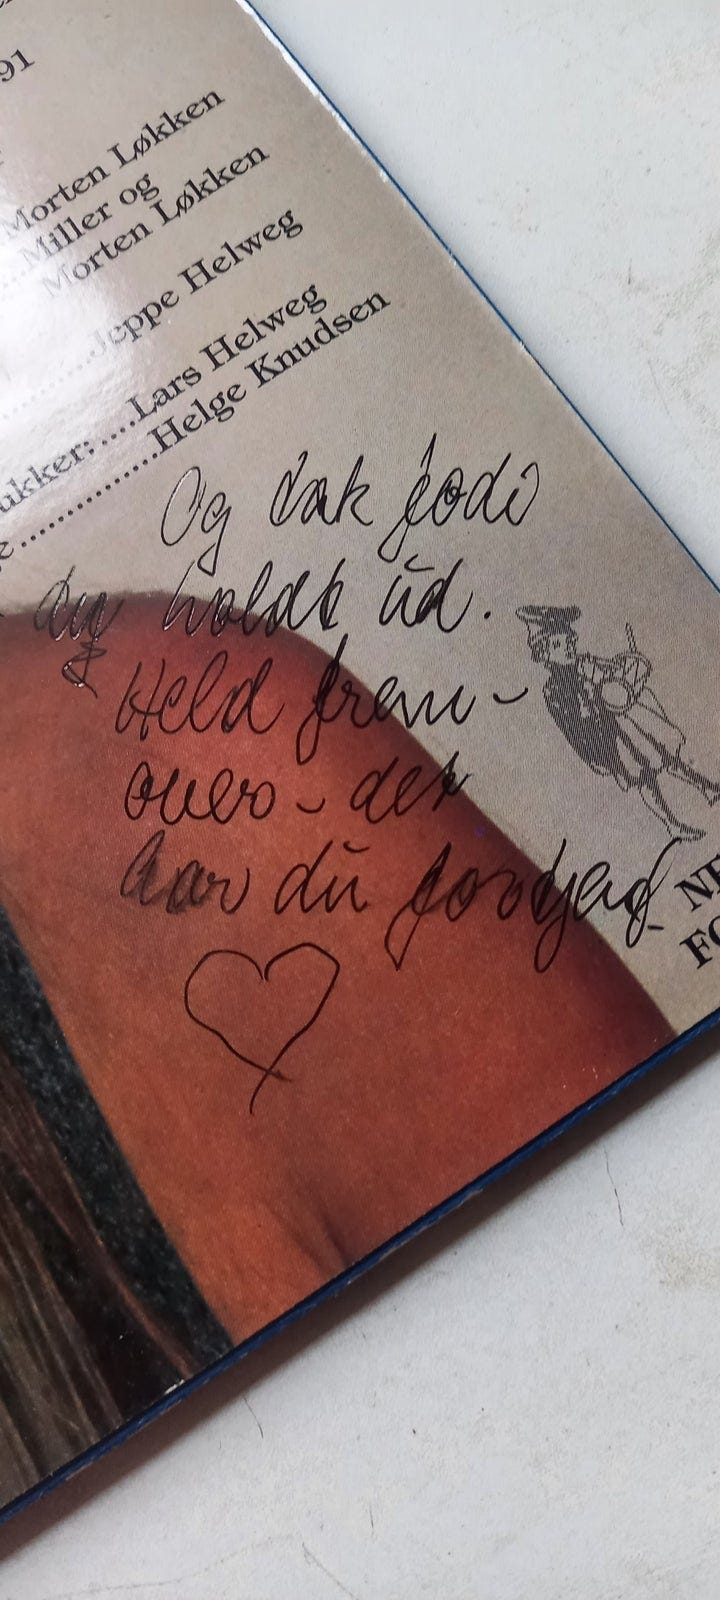 91
Morten Løkken
Miller og
Morten Løkken
Jeppe Helweg
ukker:....Lars Helweg
Helge Knudsen
Og tak fodi
du holdt ud.
Held frem-
over - det
har du fortjent